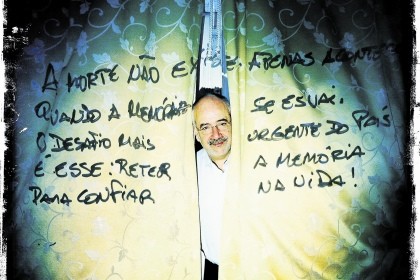 A MORTE NÃO EXISTE. APENAS ACONTECE
QUANDO A MEMÓRIA SE ESVAI.
O DESAFIO MAIS URGENTE DO PAÍS
É ESSE: RETER A MEMÓRIA
PARA CONFIAR NA VIDA!